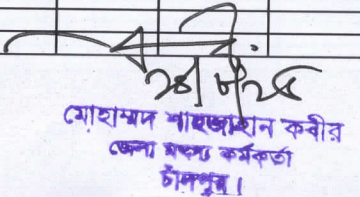 ২৪/৮/২৫
মোহাম্মদ শাহজাহান কবীর
জেলা মৎস্য কর্মকর্তা
চাঁদপুর।